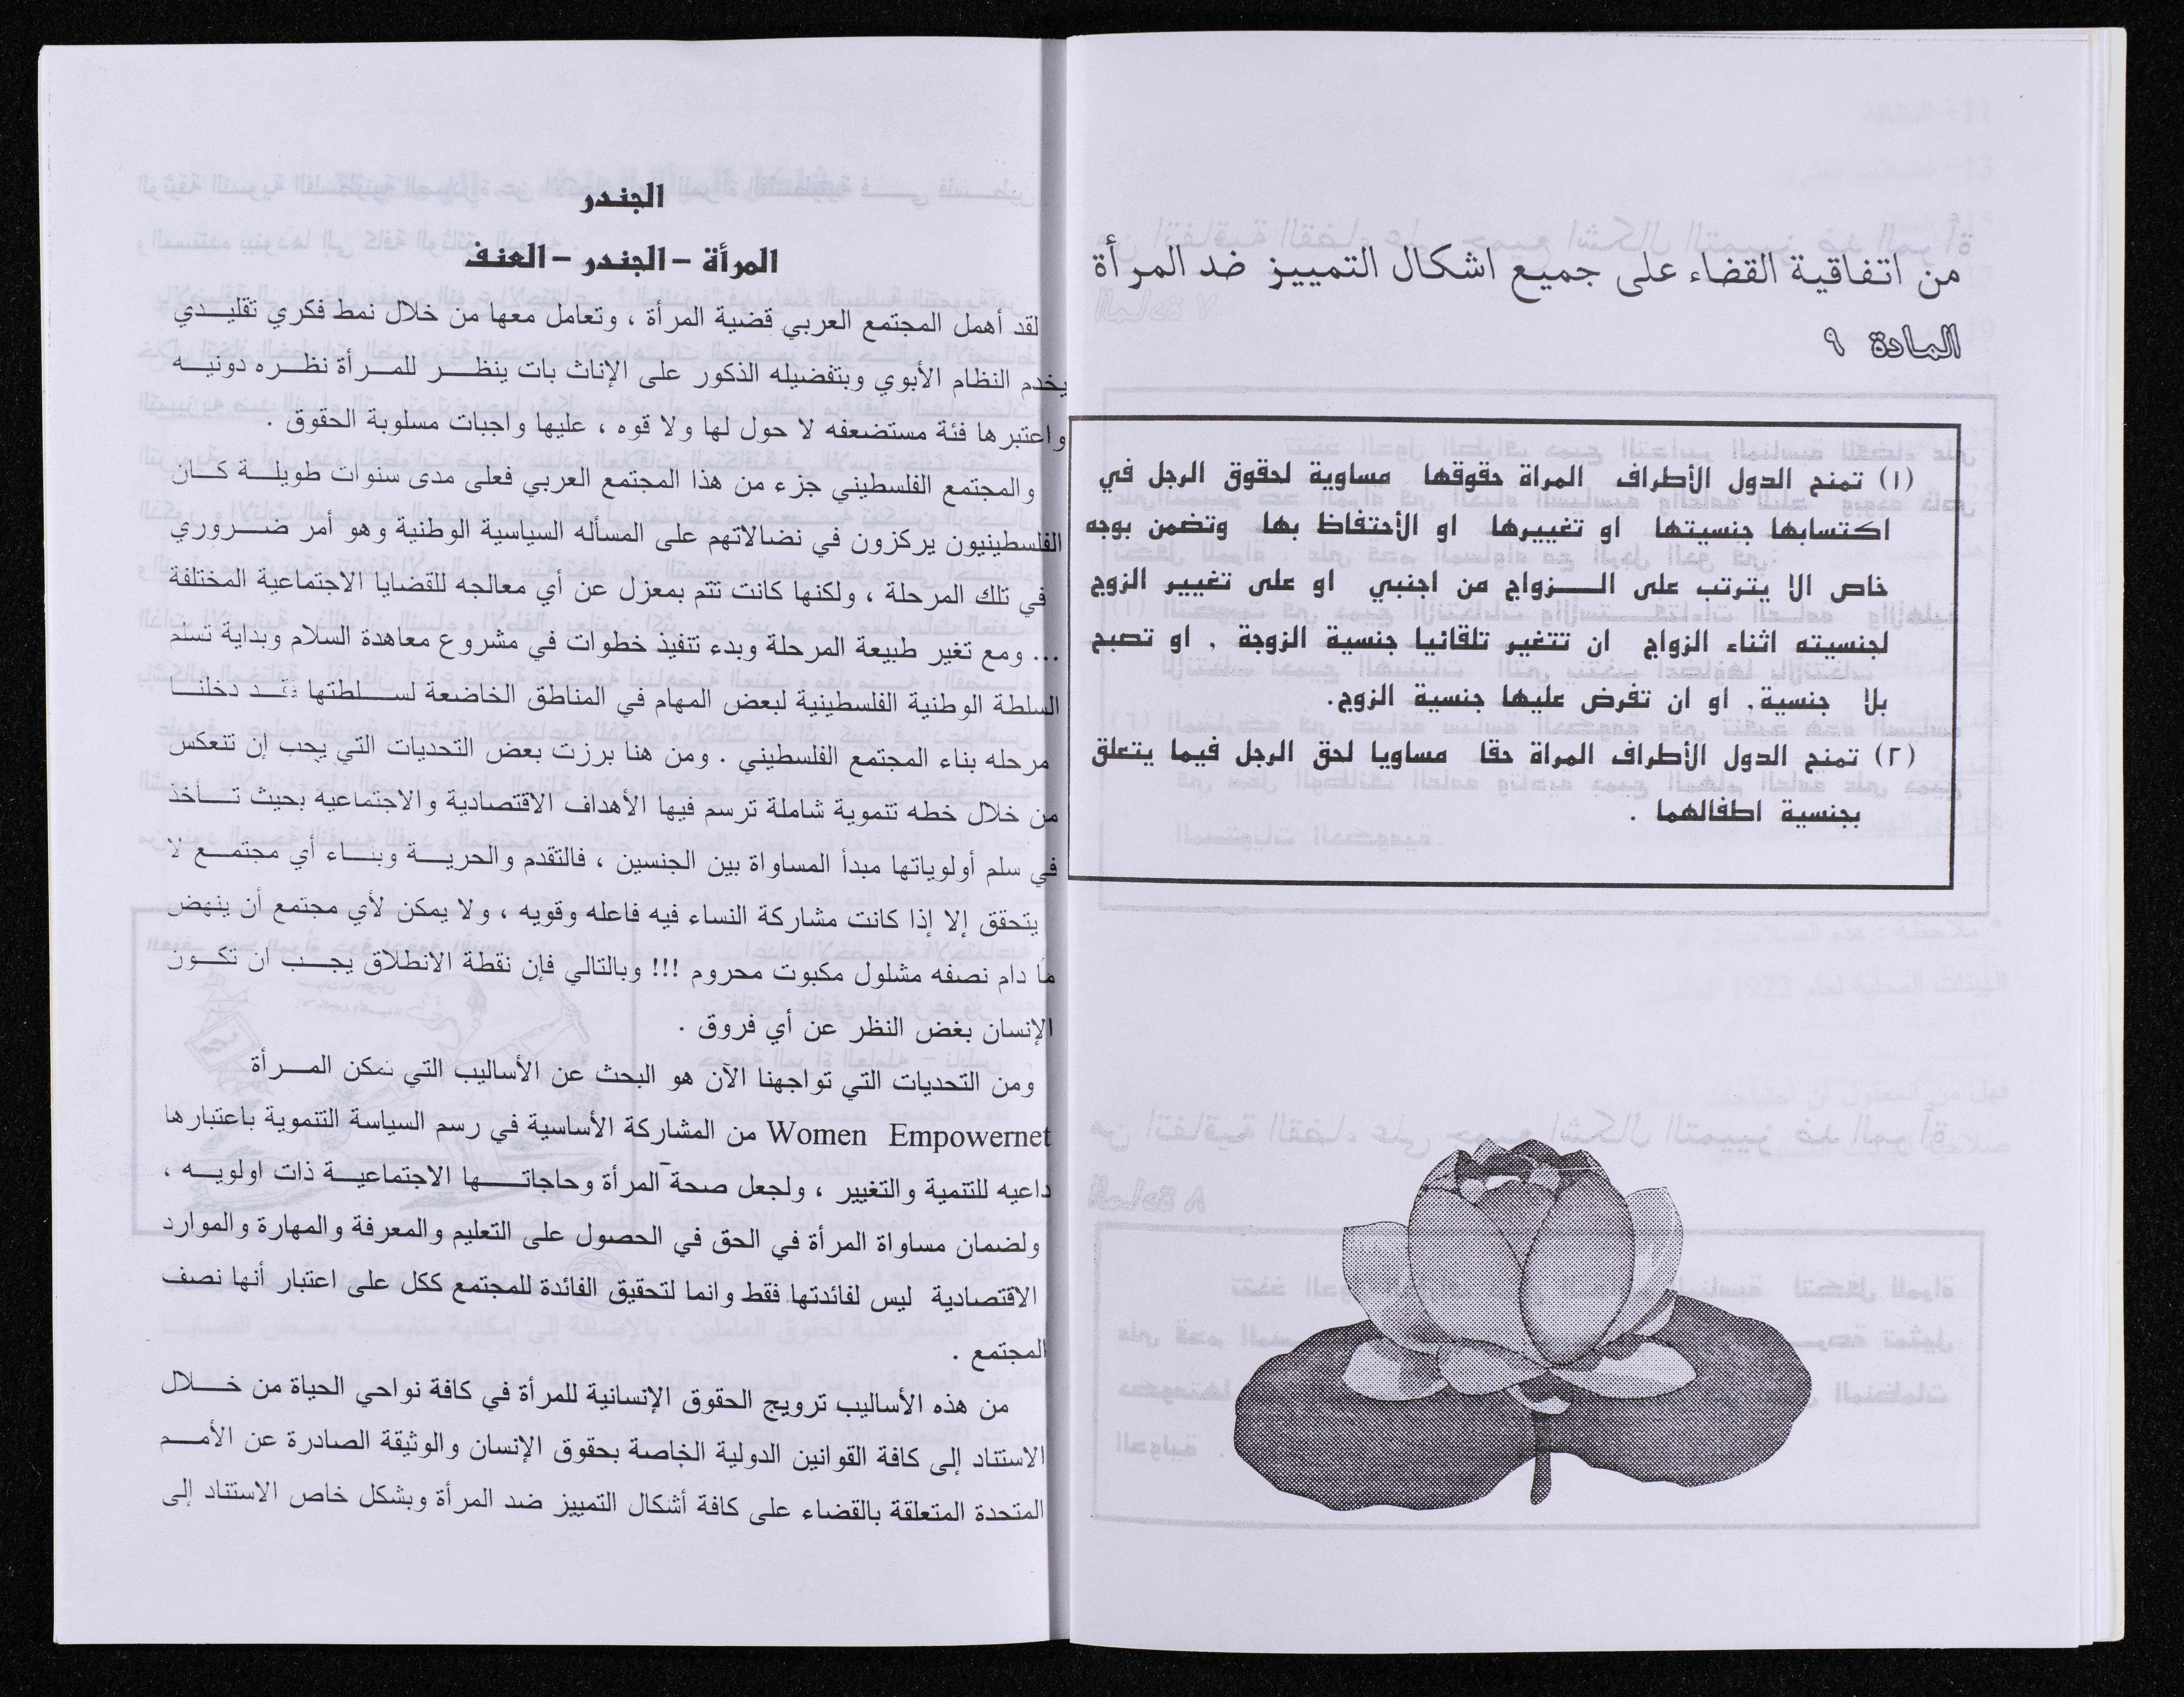 من اتفاقية القضاء على جميع اشكال التمييز ضد المرأة
المادة ٩
(١) تمنح الدول الأطراف المراة حقوقها مساوية لحقوق الرجل في
اكتسابها جنسيتها او تغييرها او الأحتفاظ بها وتضمن بوجه
خاص الا يترتب على الـــزواج من اجنبي او على تغيير الزوج
لجنسيته اثناء الزواج ان تتغير تلقائيا جنسية الزوجة , او تصبح
بلا جنسية, او ان تفرض عليها جنسية الزوج.
(٢) تمنح الدول الأطراف المراة حقا مساويا لحق الرجل فيما يتعلق
بجنسية اطفالهما .
الجندر
المرأة – الجندر – العنف
لقد أهمل المجتمع العربي قضية المرأة ، وتعامل معها من خلال نمط فكري تقليـــدي
يخدم النظام الأبوي وبتفضيله الذكور على الإناث بات ينظـــر للمـــرأة نظـــره دونيـــه
واعتبرها فئة مستضعفه لا حول لها ولا قوه ، عليها واجبات مسلوبة الحقوق .
والمجتمع الفلسطيني جزء من هذا المجتمع العربي فعلى مدى سنوات طويلـــة كـــان
الفلسطينيون يركزون في نضالاتهم على المسأله السياسية الوطنية وهو أمر ضـــروري
في تلك المرحلة ، ولكنها كانت تتم بمعزل عن أي معالجه للقضايا الاجتماعية المختلفة
... ومع تغير طبيعة المرحلة وبدء تنفيذ خطوات في مشروع معاهدة السلام وبداية تسلم
السلطة الوطنية الفلسطينية لبعض المهام في المناطق الخاضعة لســـلطتها فقـــد دخلنـــا
مرحله بناء المجتمع الفلسطيني . ومن هنا برزت بعض التحديات التي يجب إن تنعكس
من خلال خطه تنموية شاملة ترسم فيها الأهداف الاقتصادية والاجتماعيه بحيث تـــأخذ
في سلم أولوياتها مبدأ المساواة بين الجنسين ، فالتقدم والحريـــة وبنـــاء أي مجتمـــع لا
يتحقق إلا إذا كانت مشاركة النساء فيه فاعله وقويه ، ولا يمكن لأي مجتمع أن ينهض
ما دام نصفه مشلول مكبوت محروم !!! وبالتالي فإن نقطة الانطلاق يجـــب ان تكـــون
الإنسان بغض النظر عن أي فروق .
ومن التحديات التي تواجهنا الآن هو البحث عن الأساليب التي تمكن المـــرأة
Women Empowernet من المشاركة الأساسية في رسم السياسة التنموية باعتبارها
داعيه للتنمية والتغيير ، ولجعل صحة المرأة وحاجاتـــها الاجتماعيـــة ذات اولويـــه ،
ولضمان مساواة المرأة في الحق في الحصول على التعليم والمعرفة والمهارة والموارد
الاقتصادية ليس لفائدتها فقط وانما لتحقيق الفائدة للمجتمع ككل على اعتبار أنها نصف
المجتمع .
من هذه الأساليب ترويج الحقوق الإنسانية للمرأة في كافة نواحي الحياة من خـــلال
الاستناد إلى كافة القوانين الدولية الخاصة بحقوق الإنسان والوثيقة الصادرة عن الأمـــم
المتحدة المتعلقة بالقضاء على كافة أشكال التمييز ضد المرأة وبشكل خاص الاستناد إلى